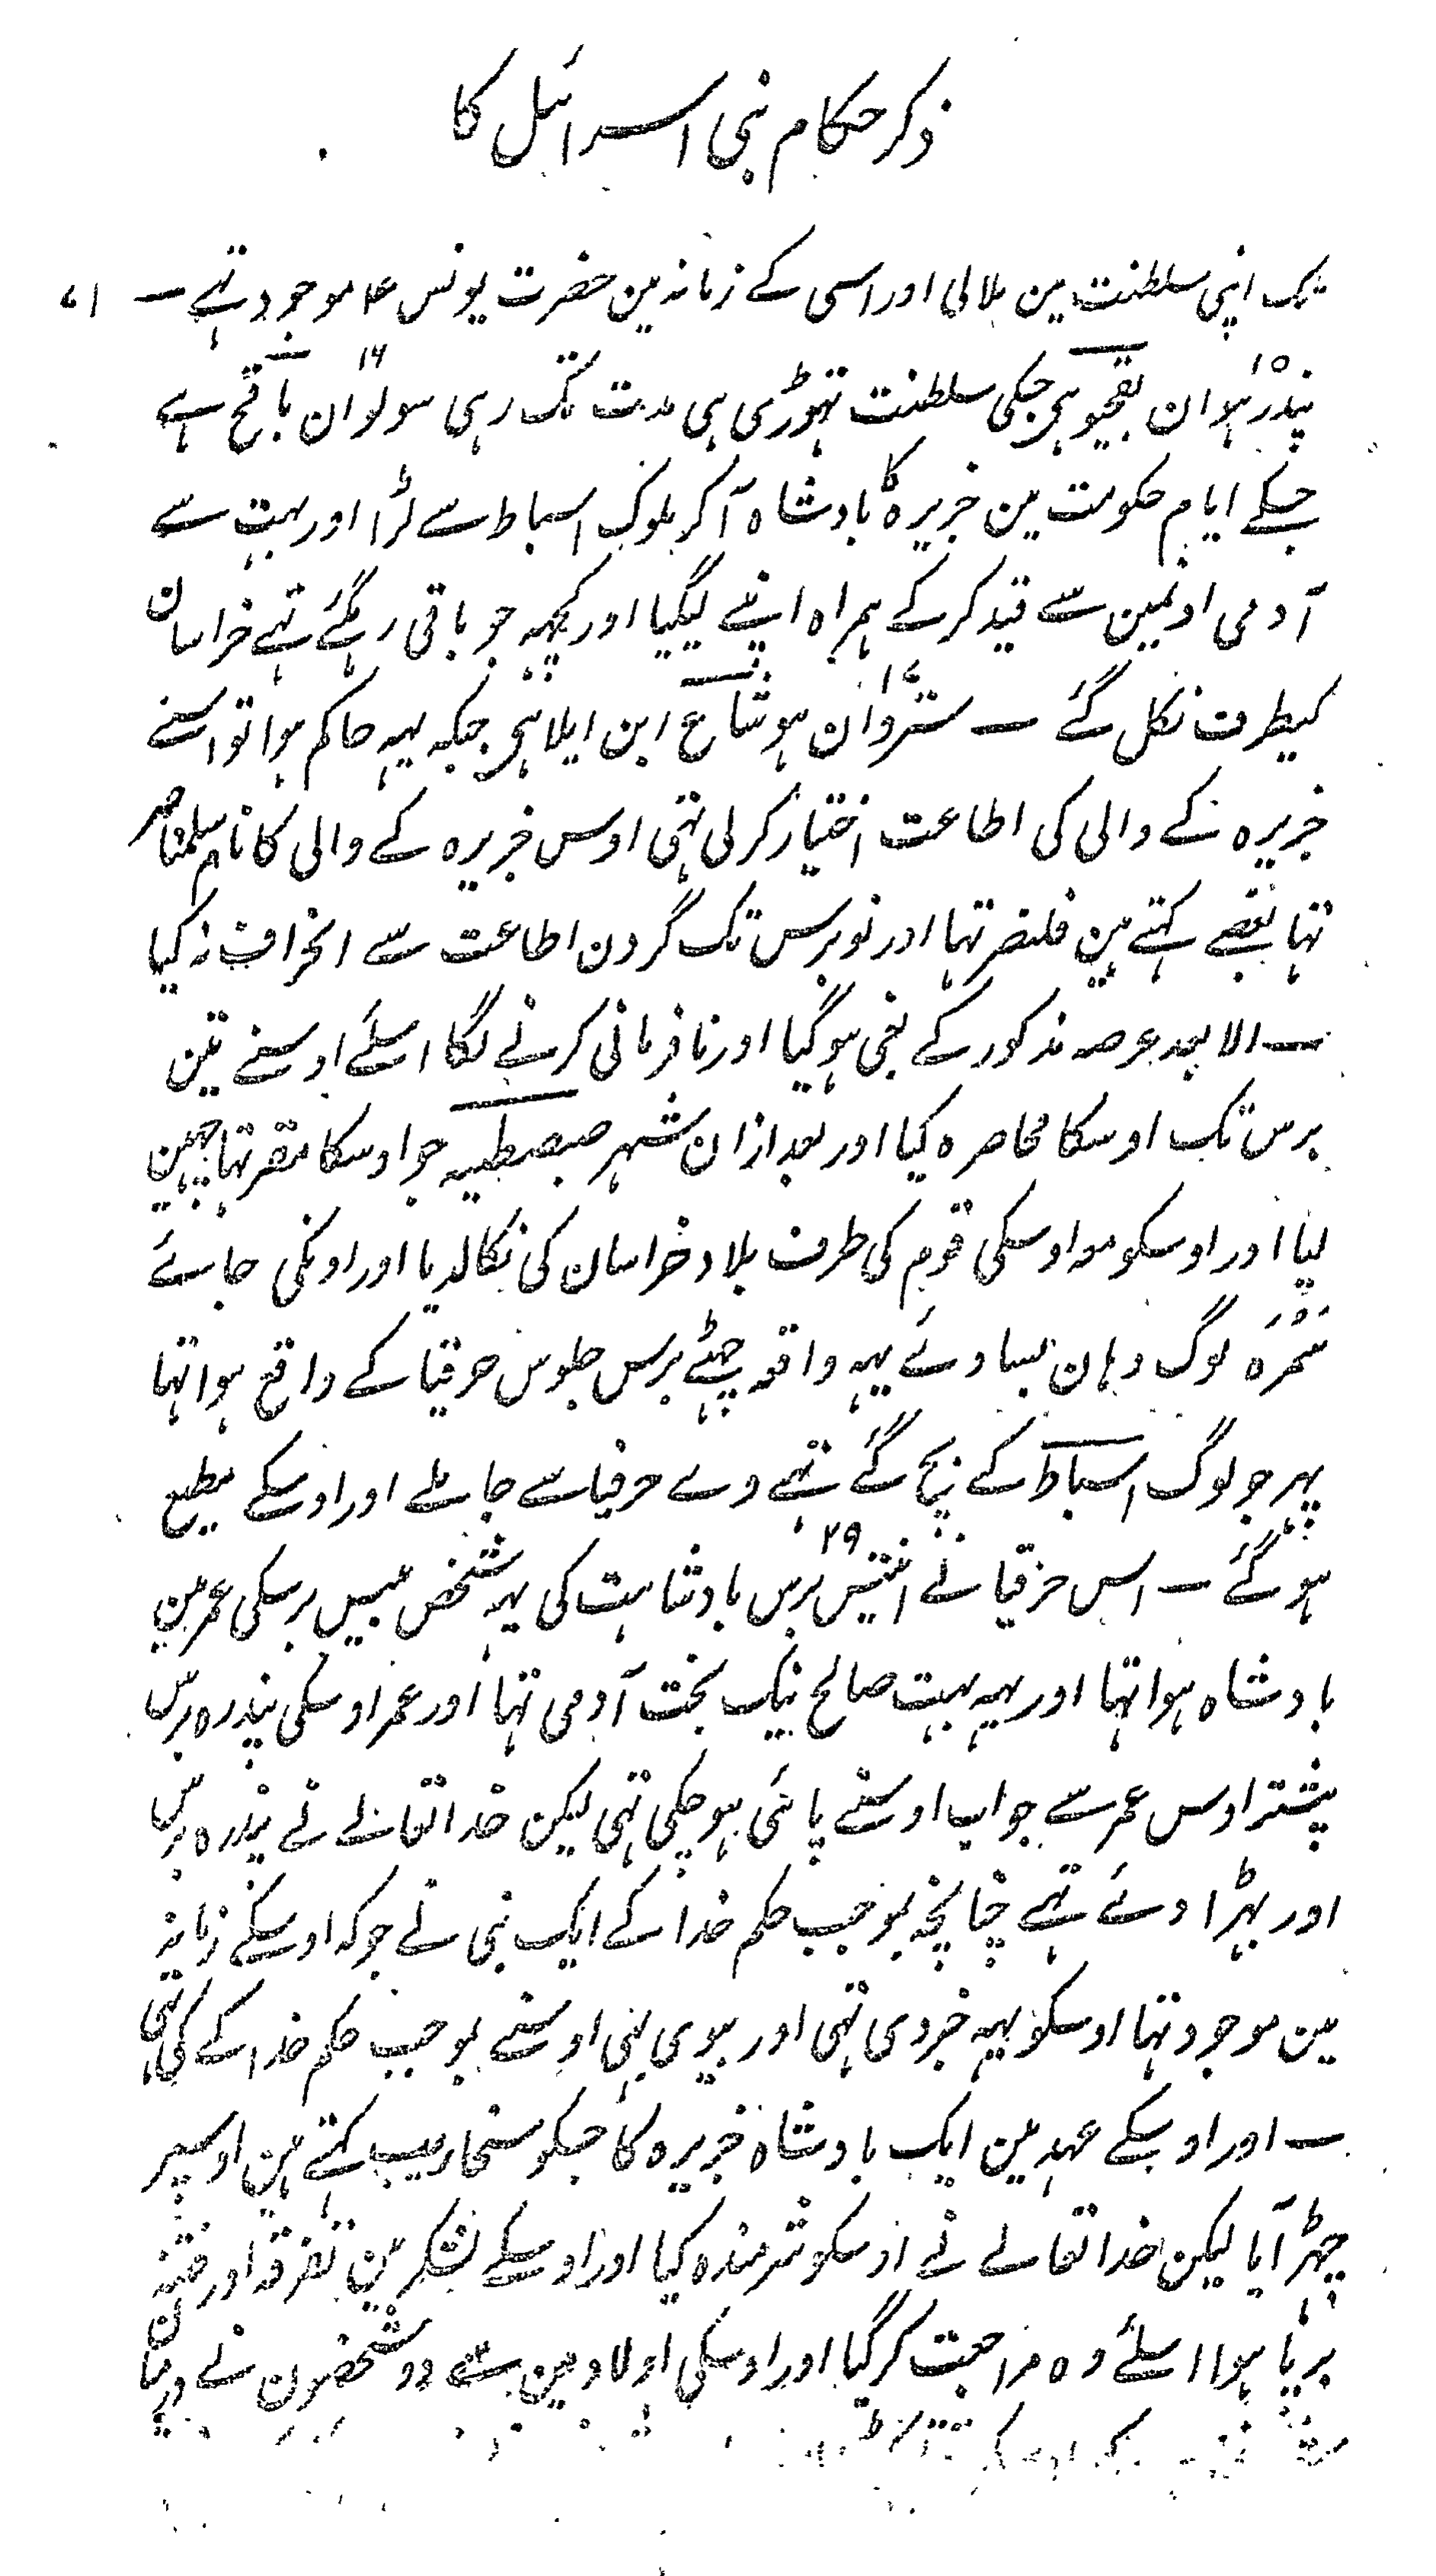 ذکر حکام بنی اسرائیل کا
یک اپنی سلطنت مین ملالی اور اسی کے زمانہ مین حضرت یونس ع۴ موجود تہے — ۷۱
۱۵ ۱۶
پندرہوان بقحیوہی جسکی سلطنت تہوڑی ہی مدت تک رہی سولوان باقح ہے
جسکے ایام حکومت مین جزیرہ کا بادشاہ آکر ملوک اسباط سے لڑا اور بہت سے
آدمی اونمین سے قید کر کے ہمراہ اپنے لیگیا اور کچہہ جو باقی رہگئے تہے خراسان
۱۷
کیطرف نکل گئے — سترہوان ہوشاع ابن ایلاہی جبکہ یہہ حاکم ہوا تو اسنے
جزیرہ کے والی کی اطاعت اختیار کرلی تہی اوس جزیرہ کے والی کا نام سلمناصر
تہا بعضے کہتے ہین فلنصر تہا اور نو برس تک گردن اطاعت سے انحراف نہ کیا
— الا بعد عرصہ مذکور کے بغی ہوگیا اور نافرمانی کرنے لگا اسلئے اوسنے تین
برس تک اوسکا محاصرہ کیا اور بعد ازان شہر صبصطیہ جو اوسکا مقر تہا چہین
لیا اور اوسکو معہ اوسکی قوم کی طرف بلاد خراسان کی نکالدیا اور اونکی جائے
سَمُرَہ لوگ وہان بسا دئے یہہ واقعہ چہٹے برس جلوس حزقیا کے واقع ہوا تہا
پہر جو لوگ اسباط کے بچ گئے تہے وے حزقیا سے جا ملے اور اوسکے مطیع
۲۹
ہو گئے — اس حزقیا نے انتیس برس بادشاہت کی یہہ شخص بیس برسکی عمر مین
بادشاہ ہوا تہا اور یہہ بہت صالح نیک بخت آدمی تہا اور عمر اوسکی پندرہ برس
پیشتر اوس عمر سے جو اب اوسنے پائی ہو چکی تہی لیکن خدا تعالے نے پندرہ برس
اور بہڑا دئے تہے چنانچہ بموجب حکم خدا کے ایک نبی نے جو کہ اوسکے زمانہ
مین موجود تہا اوسکو یہہ خبر دی تہی اور بیوی بہی اوسنے بموجب حکم خدا کے کی تہی
— اور اوسکے عہد مین ایک بادشاہ جزیرہ کا جسکو سنحاریب کہتے ہین اوسپر
چہڑ آیا لیکن خدا تعالے نے اوسکو شرمندہ کیا اور اوسکے لشکر مین تفرقہ اور فتنہ
برپا ہوا اسلئے وہ مراجعت کر گیا اور اوسکی اولاد مین سے دو شخصون نے درمیان